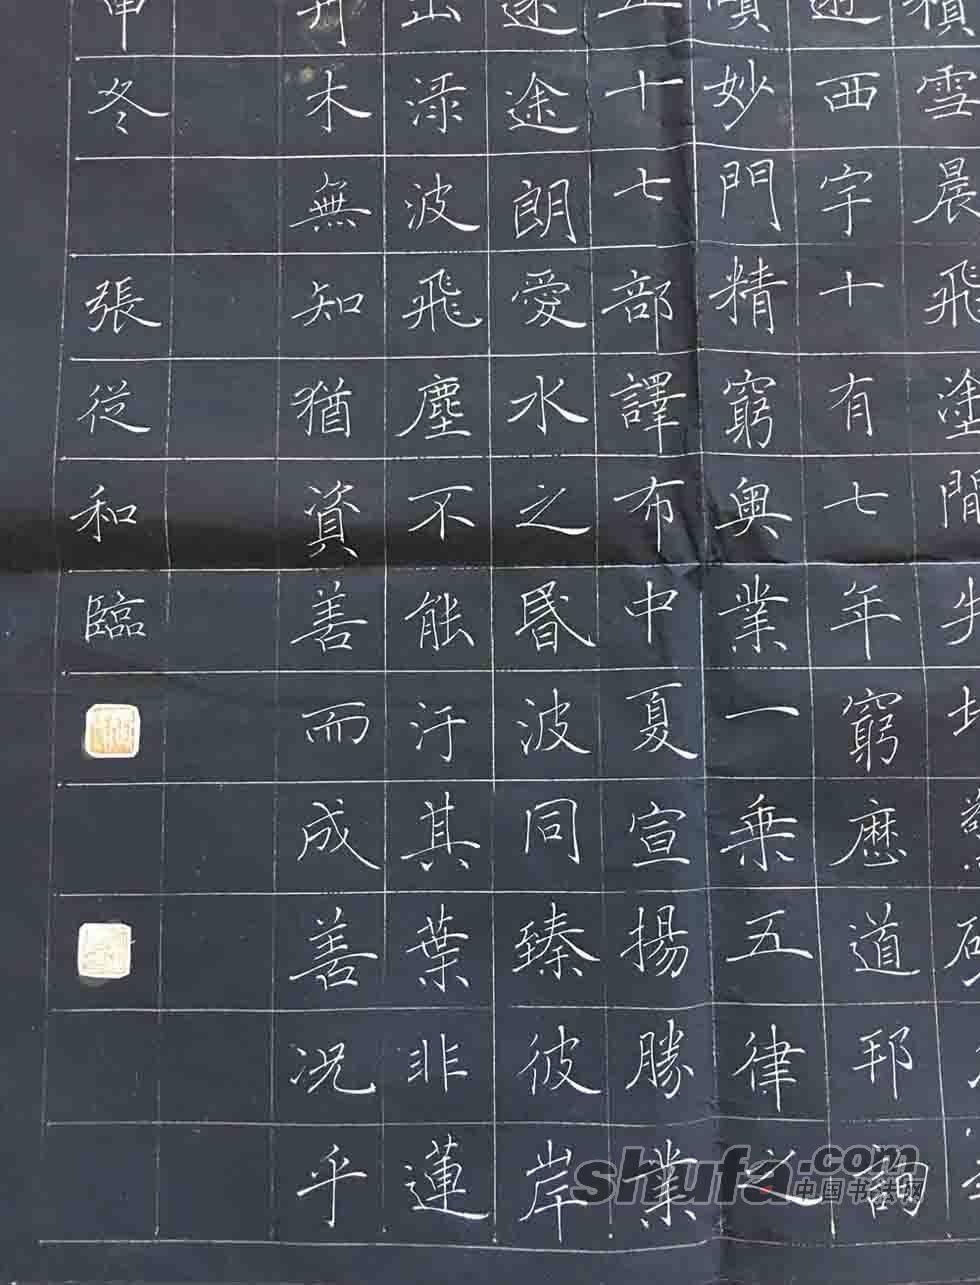 積雪晨飛塗間
遊西宇十有七年窮厯道邦詢
賾妙門精窮奧業一乗五律之
五十七部譯布中夏宣揚勝業
途朗愛水之昬波同臻彼岸
出渌波飛塵不能汙其葉非蓮
卉木無知猶資善而成善况乎
申冬 張從和臨
shufa.com
中国书法网